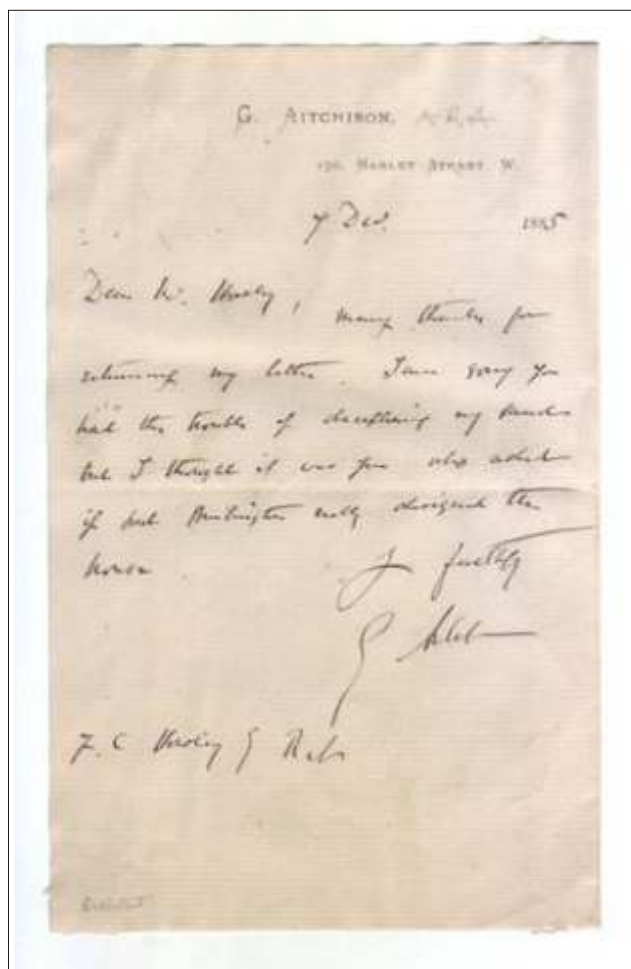 G. AITCHISON,
150. HARLEY STREET. W.
7 Dec. 1885
Dear Mr. Horsley, many thanks for
returning my letter. I am sorry you
had the trouble of deciphering my
but I thought it was you who asked
if Burlington really designed the
house
faithfully
G
C Horsley Esq